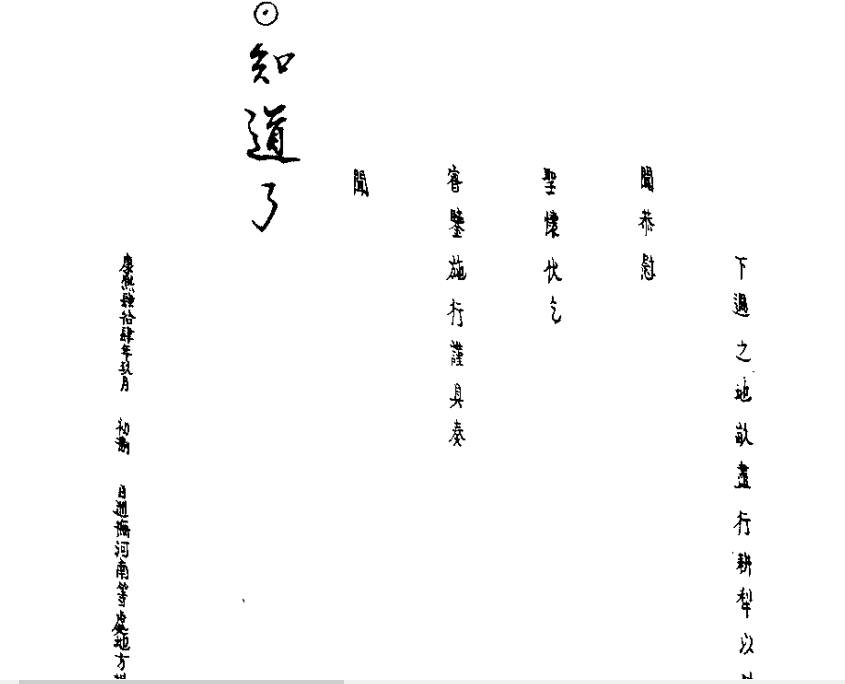 下過之地畝盡行耕犁以
聞恭慰
聖懷伏乞
睿鑒施行謹具奏
聞
知道了
康熙肆拾肆年玖月 初 日巡撫河南等處地方